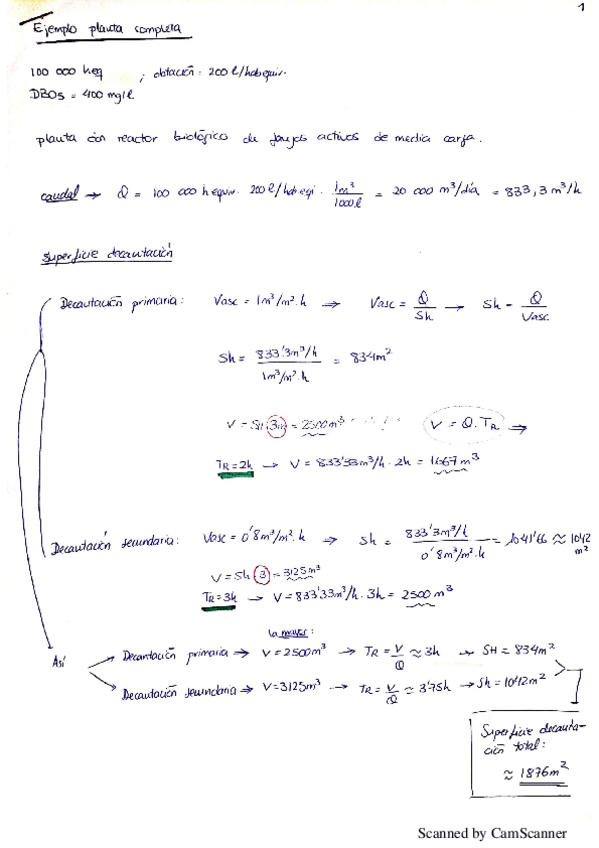 1
Ejemplo planta completa
100 000 heq ; dotación: 200 l/hab equiv.
DBO5 = 400 mg/l
planta con reactor biológico de fangos activos de media carga.
caudal → Q = 100 000 h equiv. 200 l/hab eqi. 1m³/1000l = 20 000 m³/día = 833,3 m³/h
Superficie decantación
Decantación primaria: Vasc = 1m³/m².h → Vasc = Q/Sh → Sh = Q/Vasc
Sh = 833'3m³/h / 1m³/m².h = 834m²
V = SH.3m = 2500m³ V = Q.TR →
TR=2h → V = 833'33m³/h . 2h = 1667 m³
Decantación secundaria: Vasc = 0'8m³/m².h → Sh = 833'3m³/h / 0'8m³/m².h = 1041'66 ≈ 1042 m²
V = Sh 3 = 3125m³
TR=3h → V = 833'33m³/h . 3h = 2500 m³
la mayor:
Así Decantación primaria → V = 2500m³ → TR = V/Q ≈ 3h → SH = 834m²
Decantación secundaria → V=3125m³ → TR = V/Q ≈ 3'75h → Sh = 1042m²
Superficie decanta-
ción total:
≈ 1876m²
Scanned by CamScanner